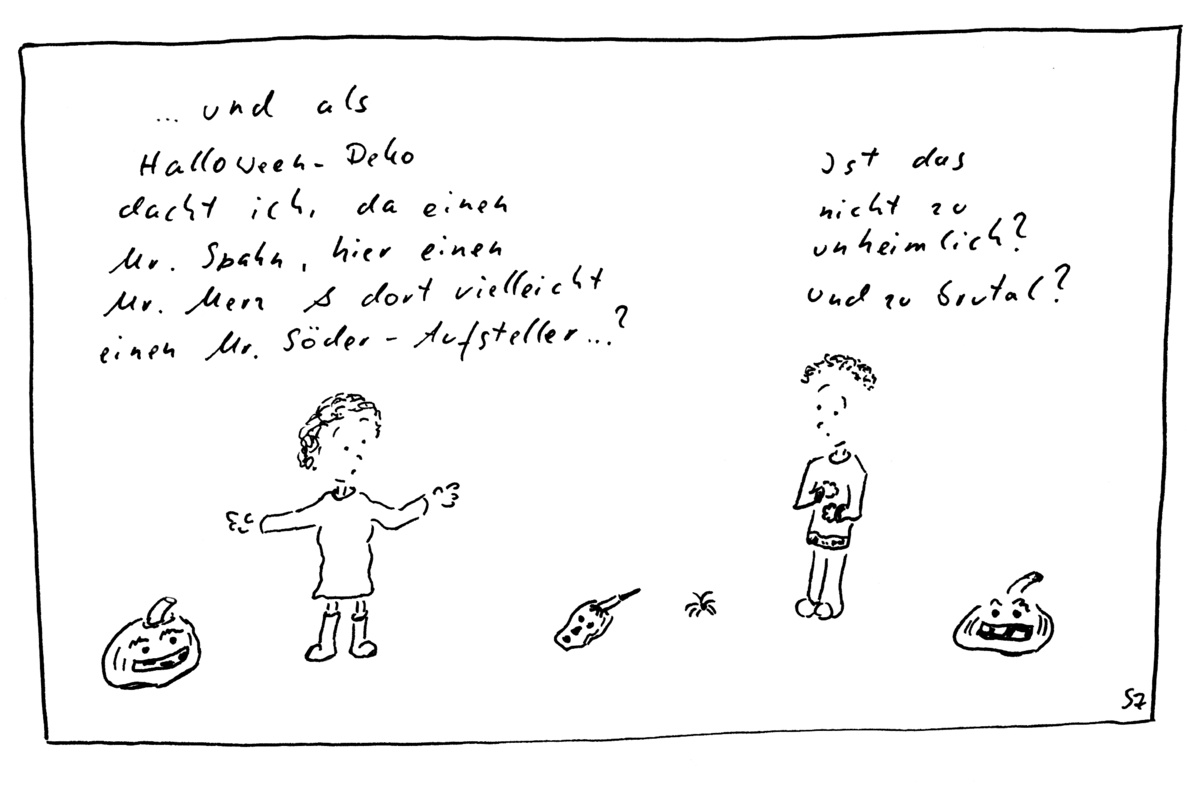 ... und als
Halloween-Deko
dacht ich, da einen
Mr. Spahn, hier einen
Mr. Merz & dort vielleicht
einen Mr. Söder-Aufsteller...?
Ist das
nicht zu
unheimlich?
und zu brutal?
SZ